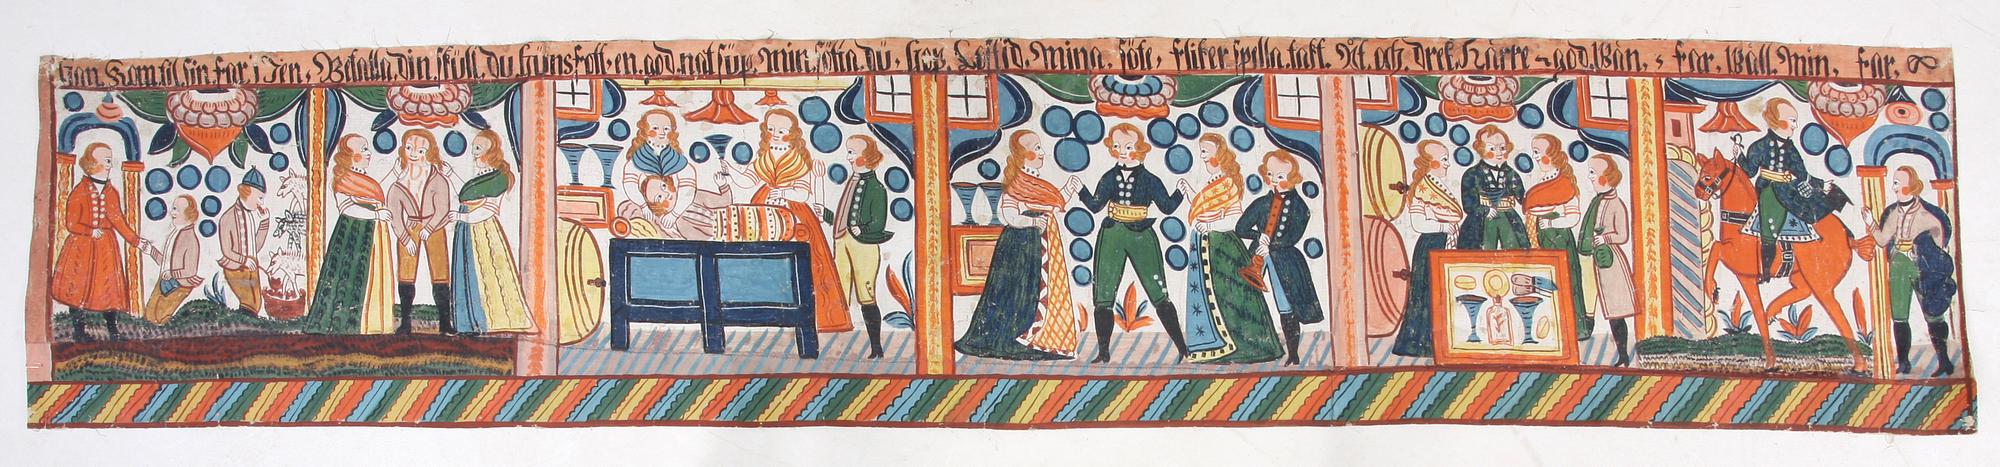 han kom til sin far i Jen, Betalla din skull du hunsfott, en god nat sup min sötta du, Lostid mina, fliker spella takt, Ät och drek Härre god Wän, far Wäll min far,